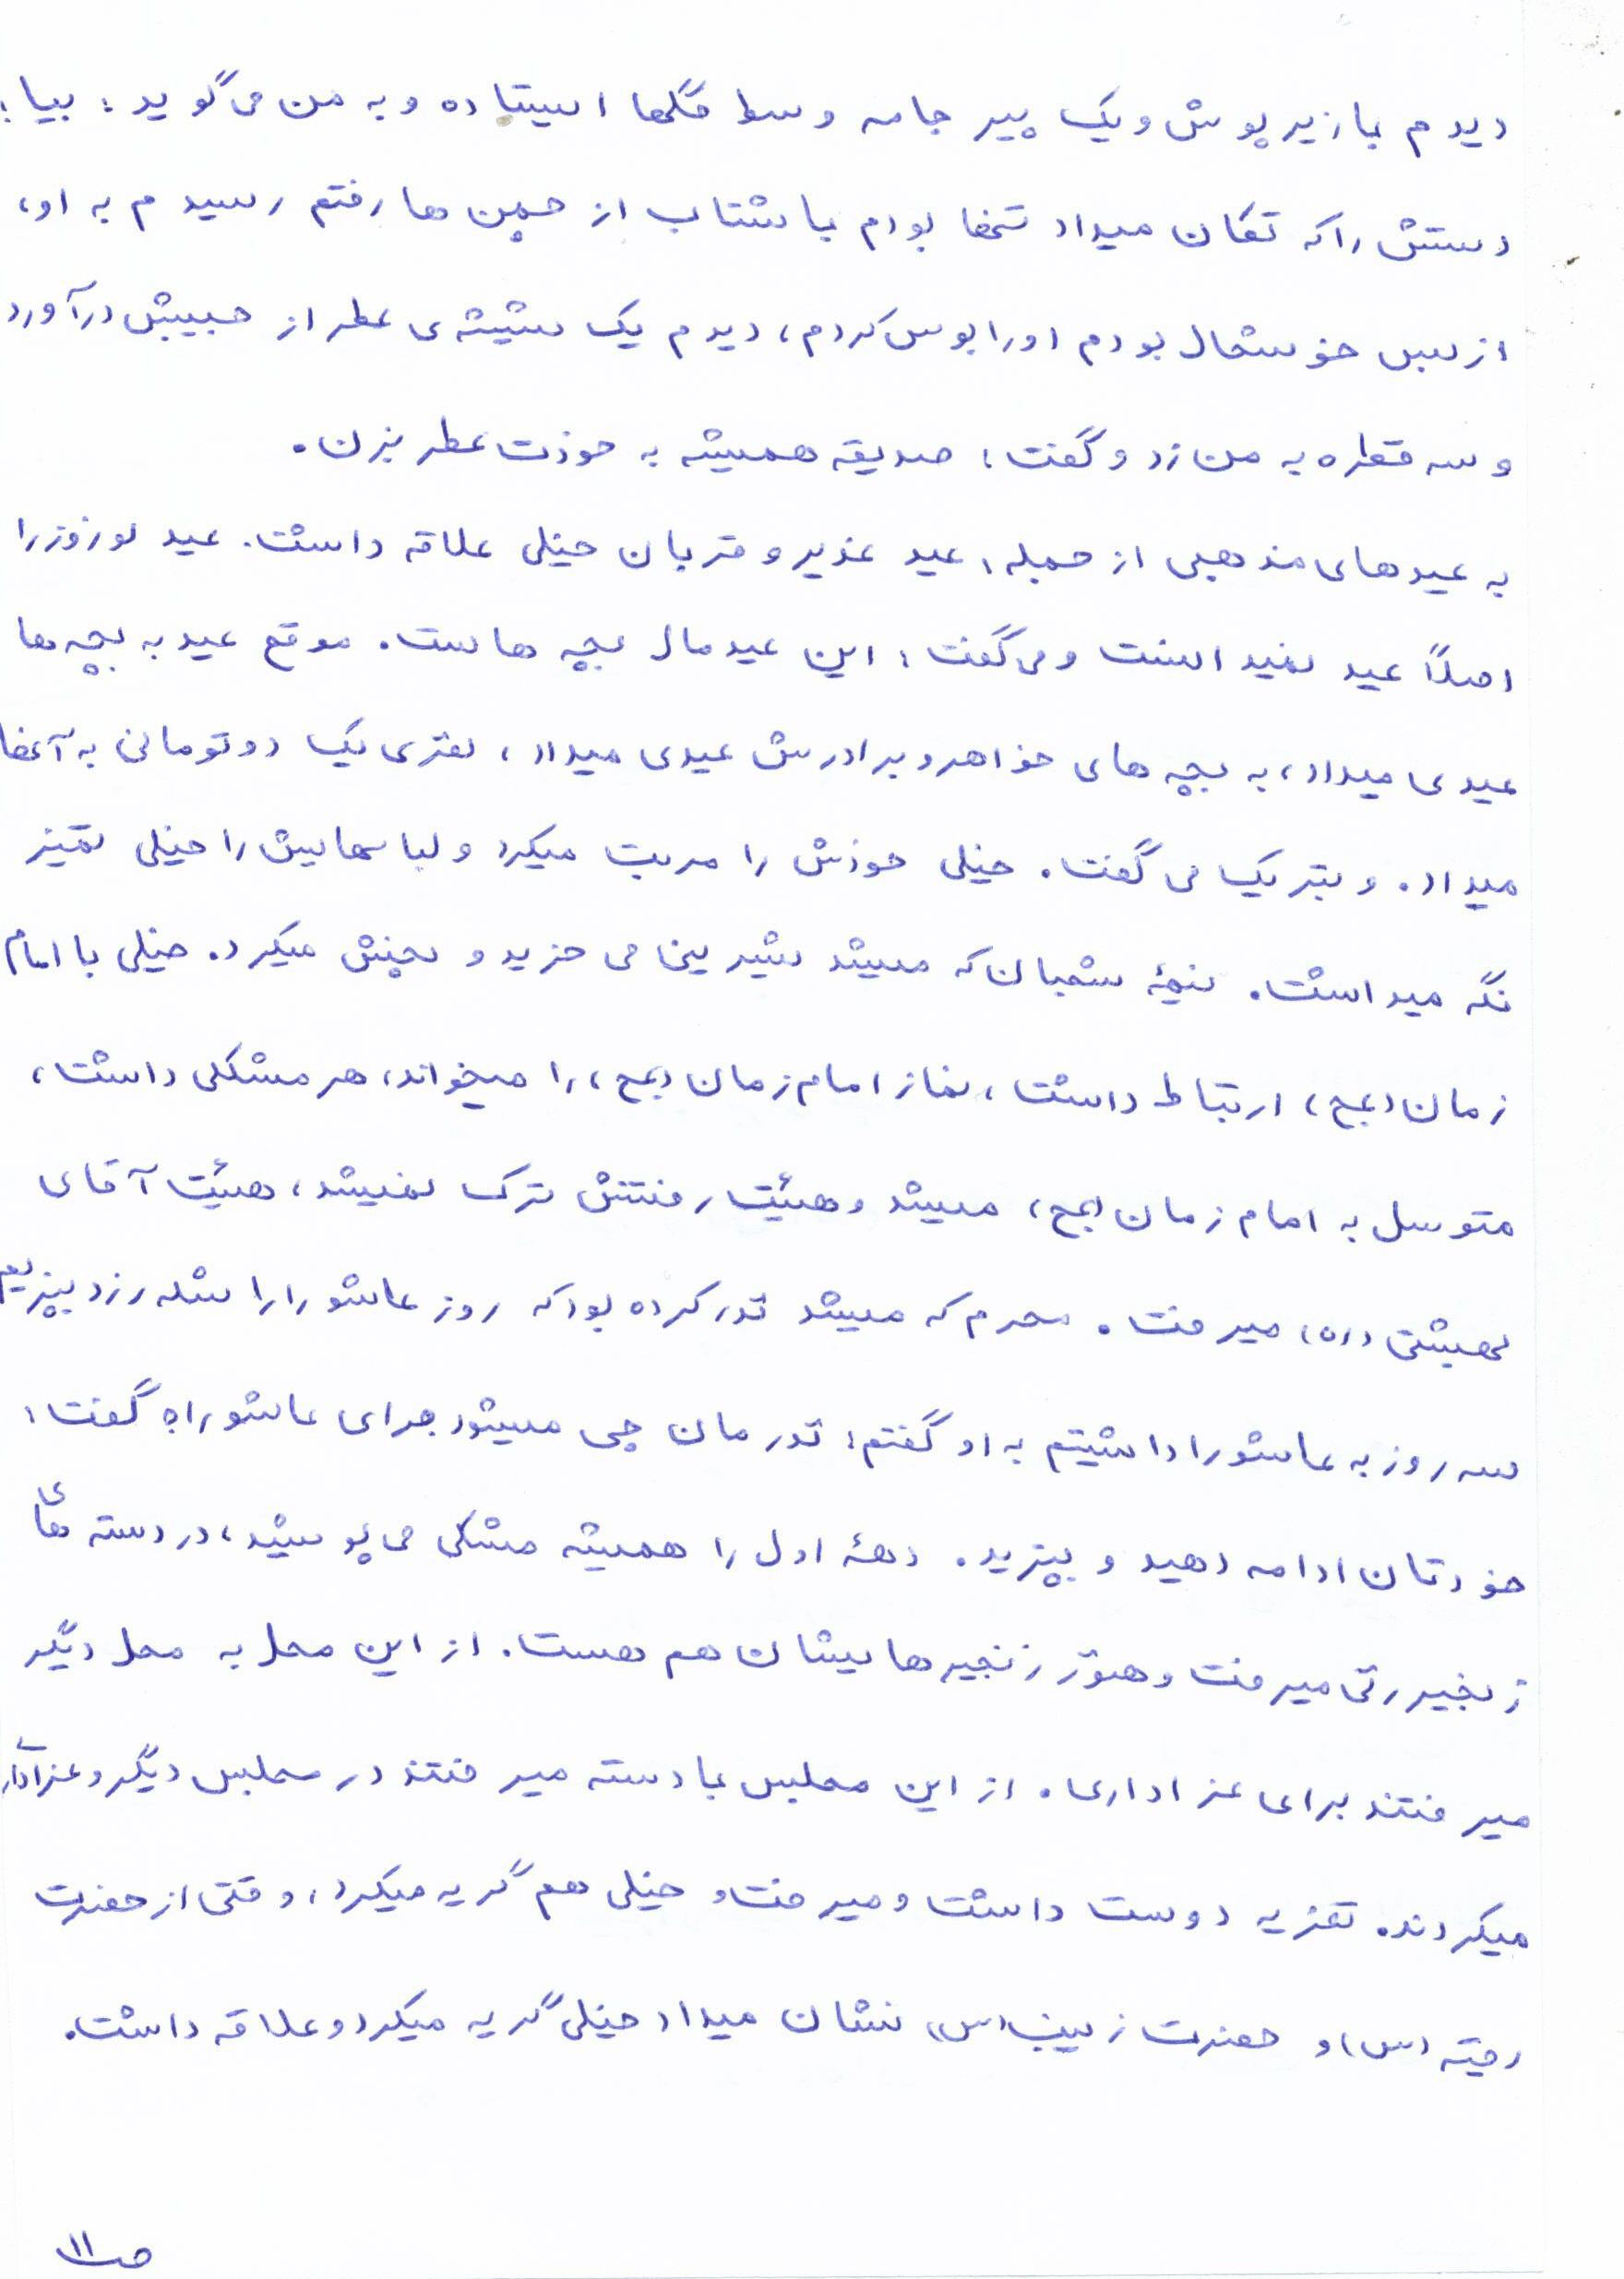 دیدم با زیرپوش و یک پیر جامه وسط گلها ایستاده و به من می گوید: بیا؛
دستش را که تکان میداد تنها بودم با شتاب از چمن ها رفتم رسیدم به او،
از بس خوشحال بودم او را بوس کردم، دیدم یک شیشه ی عطر از جیبش درآورد
و سه قطره به من زد و گفت: صدیقه همیشه به خودت عطر بزن.
به عیدهای مذهبی از جمله: عید غدیر و قربان خیلی علاقه داشت. عید نوروز را
اصلاً عید نمیدانست و می گفت: این عید مال بچه هاست. موقع عید به بچه ها
عیدی میداد، به بچه های خواهر و برادرش عیدی میداد، نفری یک دو تومانی به آنها
میداد. و تبریک می گفت. خیلی خودش را مرتب میکرد و لباسهایش را خیلی تمیز
نگه میداشت. نیمۀ شعبان که میشد شیرینی می خرید و پخش میکرد. خیلی با امام
زمان (عج) ارتباط داشت، نماز امام زمان (عج) را میخواند، هر مشکلی داشت،
متوسل به امام زمان (عج) میشد و هیئت رفتنش ترک نمیشد، هیئت آقای
بهشتی (ره) میرفت. محرم که میشد نذر کرده بود که روز عاشورا را شله زرد بپزیم
سه روز به عاشورا داشتیم به او گفتم: نذرمان چی میشود برای عاشورا؟ گفت:
خودتان ادامه دهید و بپزید. دهۀ اول را همیشه مشکی می پوشید، در دسته های
زنجیرزنی میرفت و هنوز زنجیرهایشان هم هست. از این محل به محل دیگر
میرفتند برای عزاداری. از این مجلس با دسته میرفتند در مجلس دیگر و عزاداری
میکردند. تعزیه دوست داشت و میرفت و خیلی هم گریه میکرد، وقتی از حضرت
رقیه (س) و حضرت زینب (س) نشان میداد خیلی گریه میکرد و علاقه داشت.
ص ۱۱